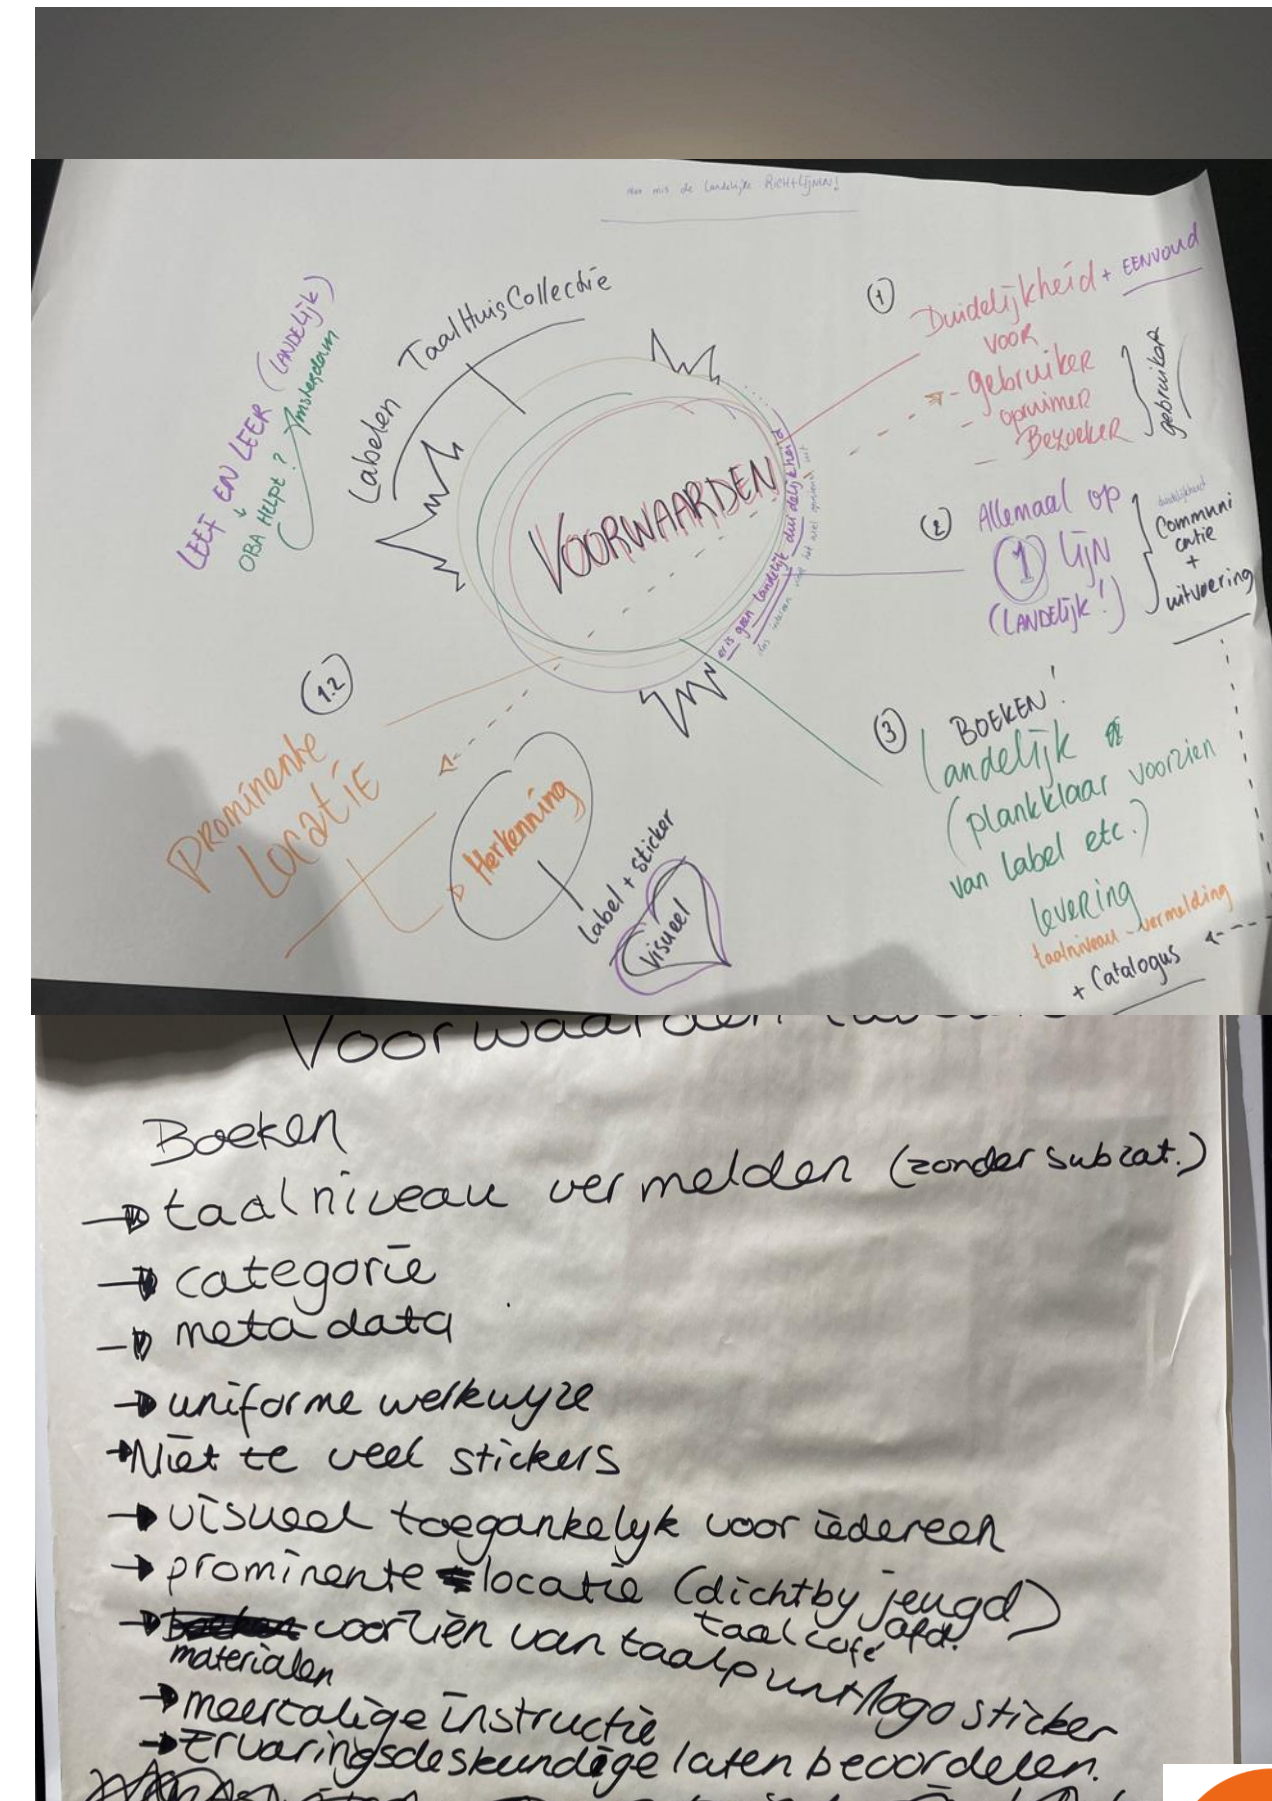 mis de landelijke RICHTLIJNEN!
Labelen TaalHuisCollectie
LEEF EN LEER (LANDELIJK)
OBA HELPT? Amsterdam
VOORWAARDEN
er is geen landelijk duidelijkheid
① Duidelijkheid + EENVOUD
VOOR
- gebruiker
opruimer
- BEZOEKER
gebruiker
② Allemaal op
① LIJN
(LANDELIJK!)
duidelijkheid
Communi
catie
+
uitvoering
③ BOEKEN!
Landelijk
(plankklaar voorzien
van label etc.)
levering
taalniveau-vermelding
+ Catalogus
1.2
PROMINENTE
LOCATIE
Herkenning
Label + sticker
visueel
Voorwaarden
Boeken
→ taalniveau vermelden (zonder subcat.)
→ categorie
→ meta data
→ uniforme werkwyze
→ Niet te veel stickers
→ visueel toegankelyk voor iedereen
→ prominente locatie (dichtby jeugd)
taalcafé afd.
→ voorzien van taalpunt/logo sticker
materialen
→ meertalige instructie
→ Ervaringsdeskundige laten beoordelen.